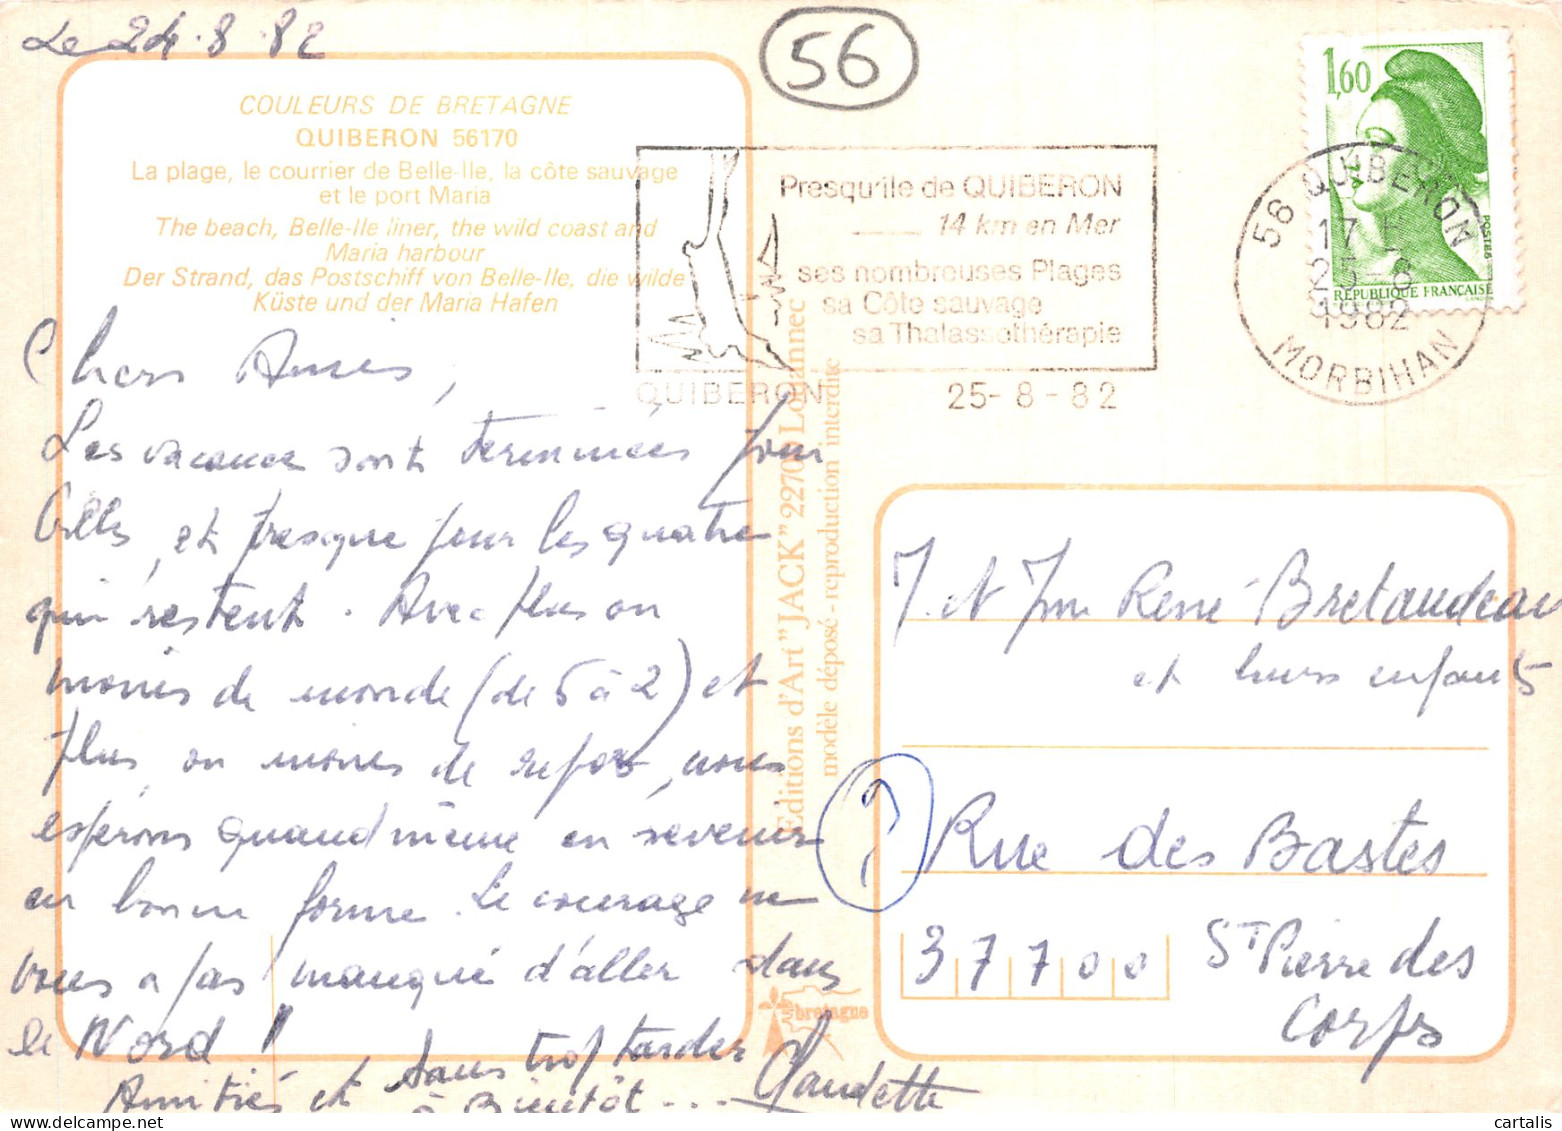 Le 24.8.82
56
COULEURS DE BRETAGNE
QUIBERON 56170
La plage, le courrier de Belle-Ile, la côte sauvage
et le port Maria
The beach, Belle-Ile liner, the wild coast and
Maria harbour
Der Strand, das Postschiff von Belle-Ile, die wilde
Küste und der Maria Hafen
Chers Amis,
Les vacances sont terminées pour
Gilles, et presque pour les quatre
qui restent. Avec plus ou
moins de monde (de 6 à 2) et
plus ou moins de repos, nous
espérons quand même en revenir
en bonne forme. Le courage ne
vous a pas manqué d'aller dans
le Nord !
Amitiés et sans trop tarder
à Bientôt... Claudette
Presqu'ile de QUIBERON
14 km en Mer
ses nombreuses Plages
sa Côte sauvage
sa Thalassothérapie
QUIBERON
25-8-82
Editions d'Art "JACK" 22700 Louannec
modèle déposé - reproduction interdite
bretagne
1,60
POSTES
RÉPUBLIQUE FRANÇAISE
56 QUIBERON
17 H
25-8
1982
MORBIHAN
M. et Mme René Bretaudeau
et leurs enfants
Rue des Bastes
37700 St Pierre des
Corps
© cartalis
www.delcampe.net